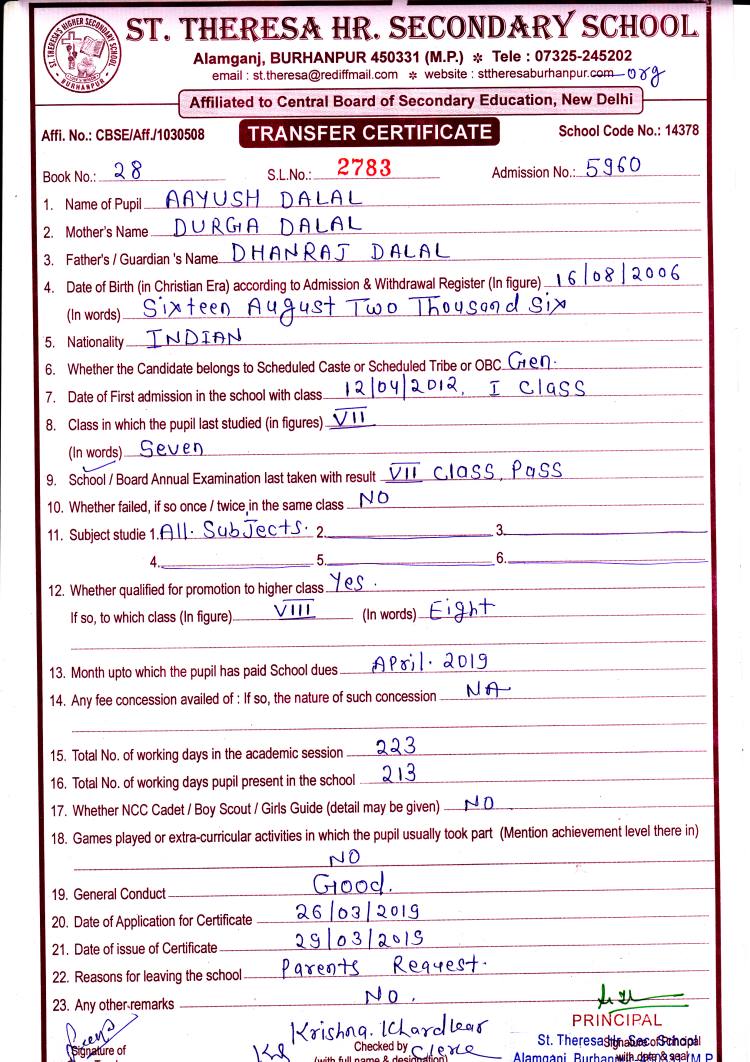 ST. THERESA'S HIGHER SECONDARY SCHOOL
BURHANPUR
ST. THERESA HR. SECONDARY SCHOOL
Alamganj, BURHANPUR 450331 (M.P.) * Tele : 07325-245202
email : st.theresa@rediffmail.com * website : sttheresaburhanpur.com org
Affiliated to Central Board of Secondary Education, New Delhi
Affi. No.: CBSE/Aff./1030508 TRANSFER CERTIFICATE School Code No.: 14378
Book No.: 28 S.L.No.: 2783 Admission No.: 5960
1. Name of Pupil AAYUSH DALAL
2. Mother's Name DURGA DALAL
3. Father's / Guardian 's Name DHANRAJ DALAL
4. Date of Birth (in Christian Era) according to Admission & Withdrawal Register (In figure) 16/08/2006
(In words) Sixteen August Two Thousand Six
5. Nationality INDIAN
6. Whether the Candidate belongs to Scheduled Caste or Scheduled Tribe or OBC Gen.
7. Date of First admission in the school with class 12/04/2012, I Class
8. Class in which the pupil last studied (in figures) VII
(In words) Seven
9. School / Board Annual Examination last taken with result VII Class, Pass
10. Whether failed, if so once / twice in the same class NO
11. Subject studie 1. All. Subjects. 2. 3.
4. 5. 6.
12. Whether qualified for promotion to higher class Yes.
If so, to which class (In figure) VIII (In words) Eight
13. Month upto which the pupil has paid School dues April. 2019
14. Any fee concession availed of : If so, the nature of such concession NA
15. Total No. of working days in the academic session 223
16. Total No. of working days pupil present in the school 213
17. Whether NCC Cadet / Boy Scout / Girls Guide (detail may be given) NO
18. Games played or extra-curricular activities in which the pupil usually took part (Mention achievement level there in)
NO
19. General Conduct Good.
20. Date of Application for Certificate 26/03/2019
21. Date of issue of Certificate 29/03/2019
22. Reasons for leaving the school Parents Request.
23. Any other remarks No.
PRINCIPAL
Krishna. Khardkar
Signature of Checked by Clerk St. Theresa Hr. Sec. School
(with full name & designation) Alamganj Burhanpur with date & seal